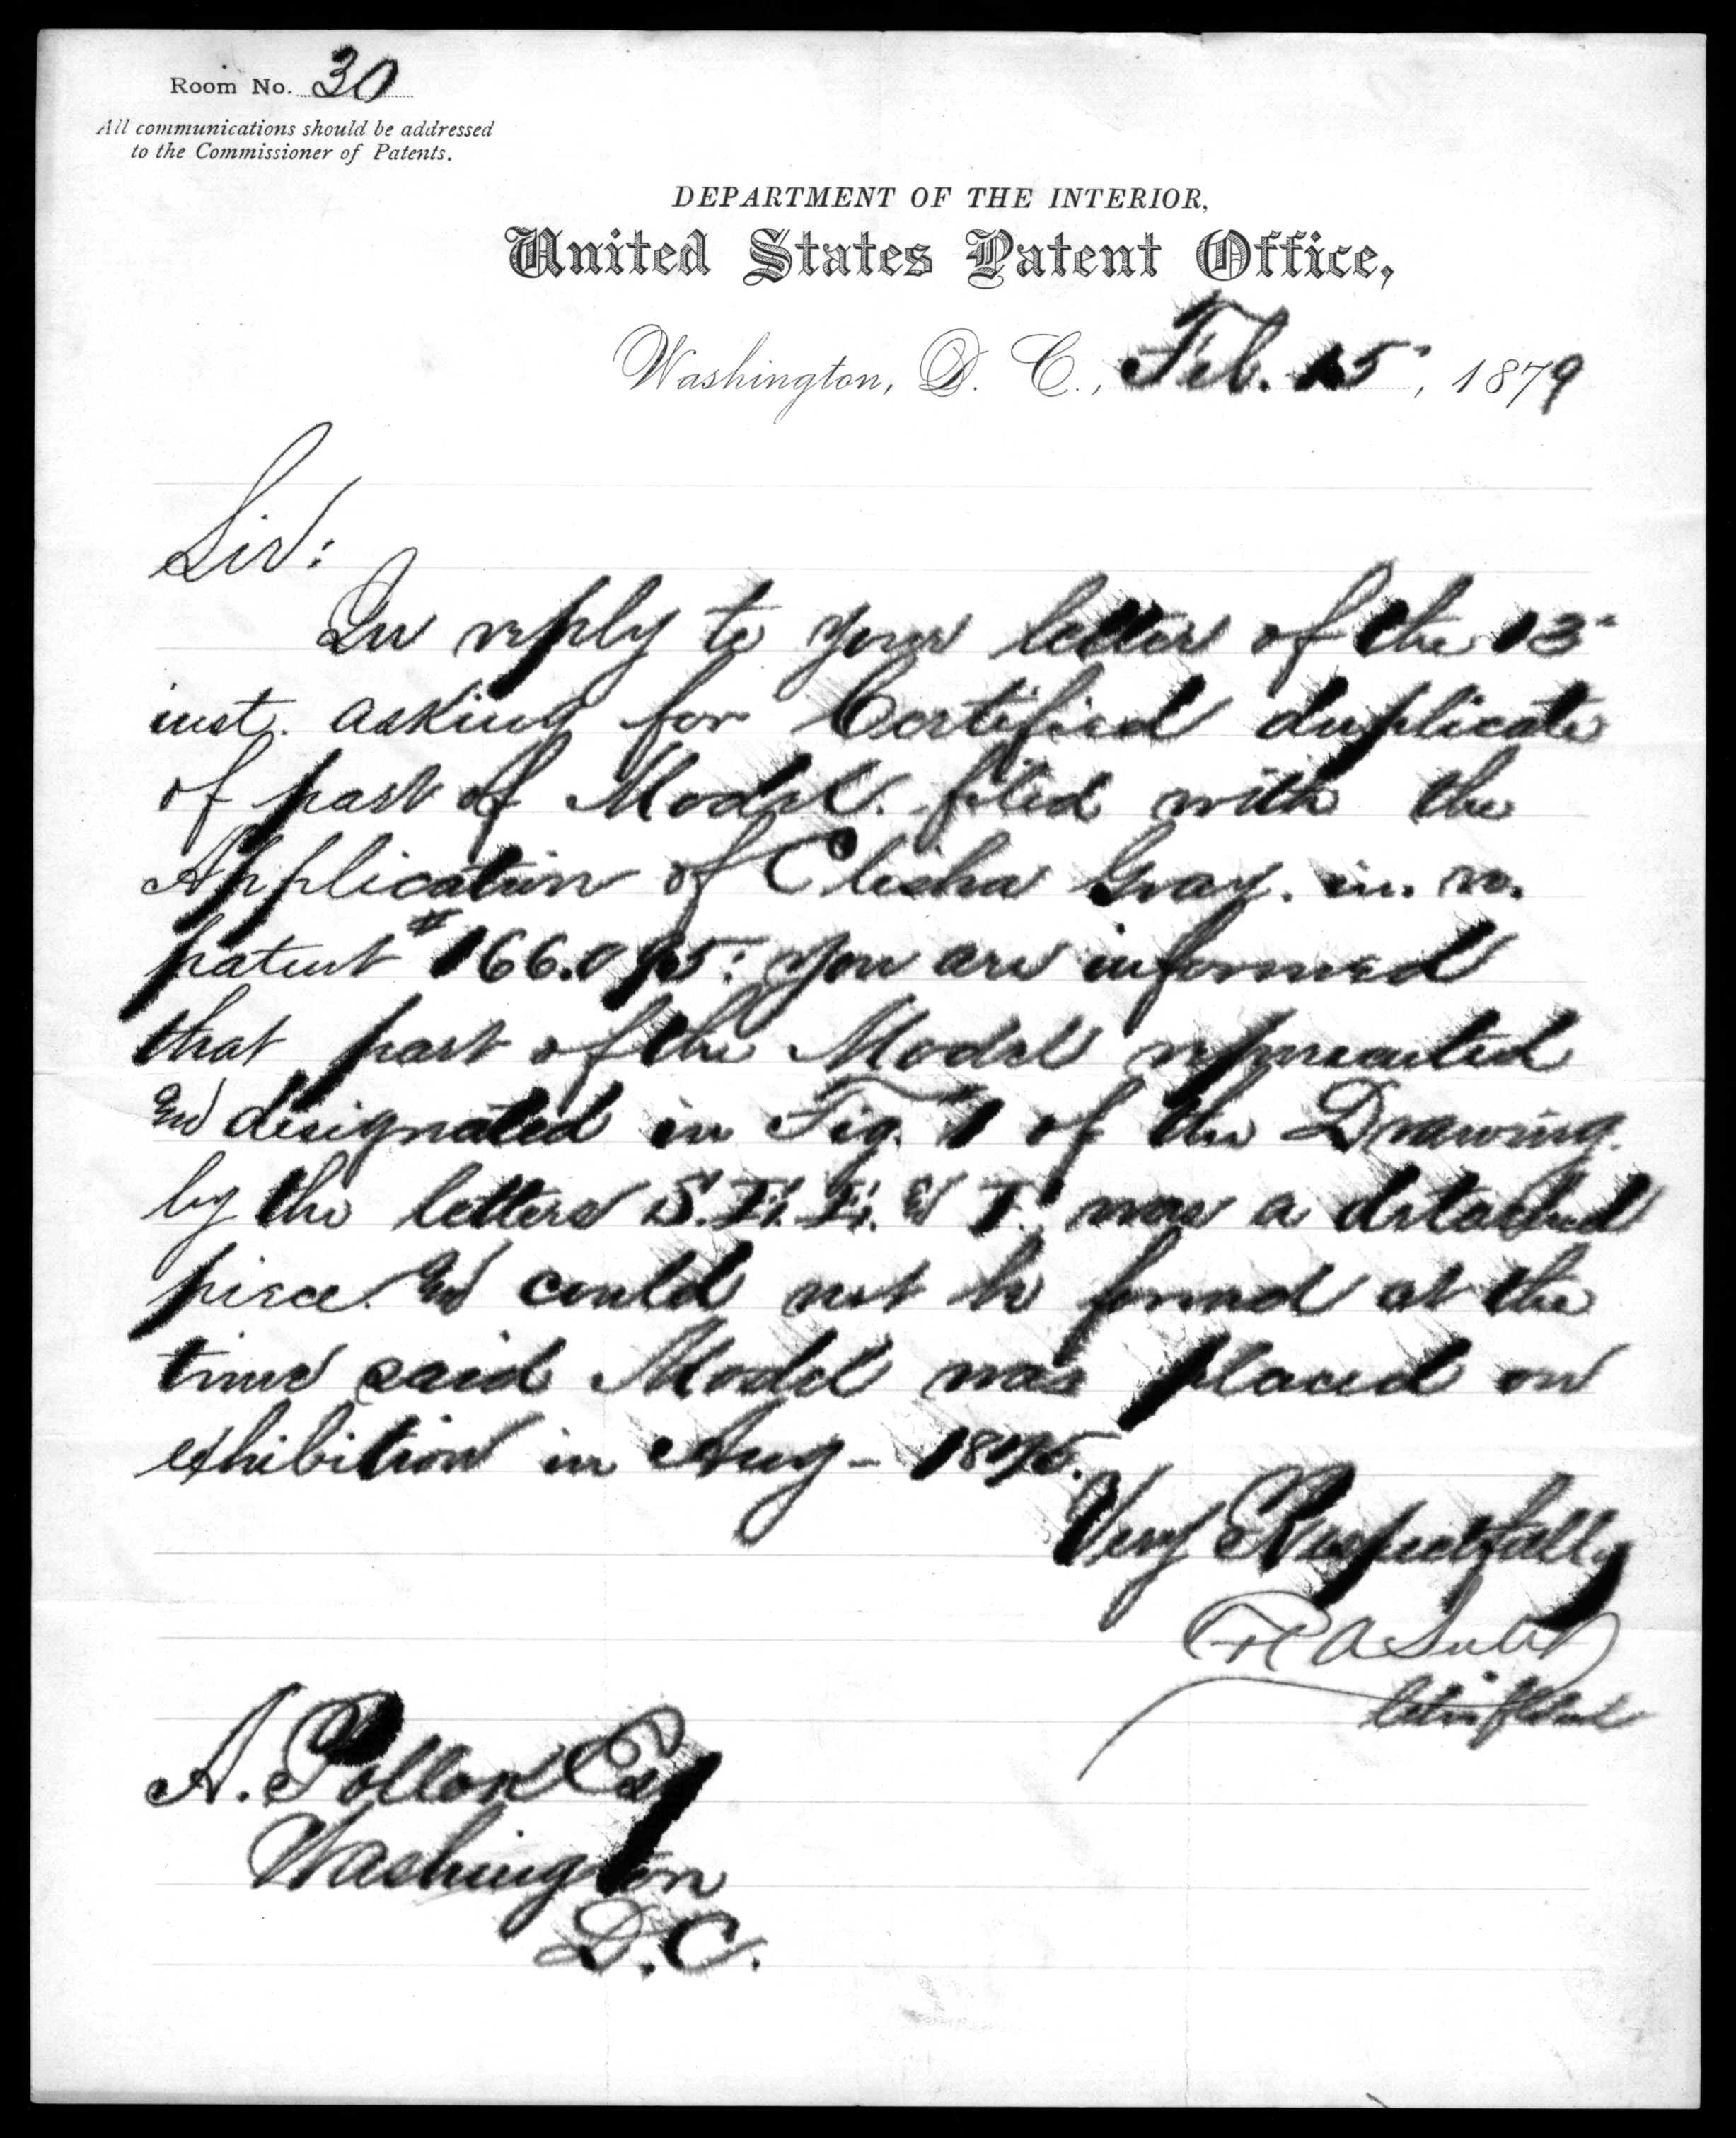 Room No. 30
All communications should be addressed
to the Commissioner of Patents.
DEPARTMENT OF THE INTERIOR,
United States Patent Office,
Washington, D. C., Feb. 15", 1879
Sir:
In reply to your letter of the 13"
inst. asking for Certified duplicate
of part of Model. filed with the
Application of Elisha Gray. in. re.
patent #166.095: you are informed
that part of the Model represented
and designated in Fig. 1 of the Drawing.
by the letters S. & T. was a detached
piece. and could not be found at the
time said Model was placed on
exhibition in Aug - 1875.
Very Respectfully
A. Pollok Esq
Washington
D.C.